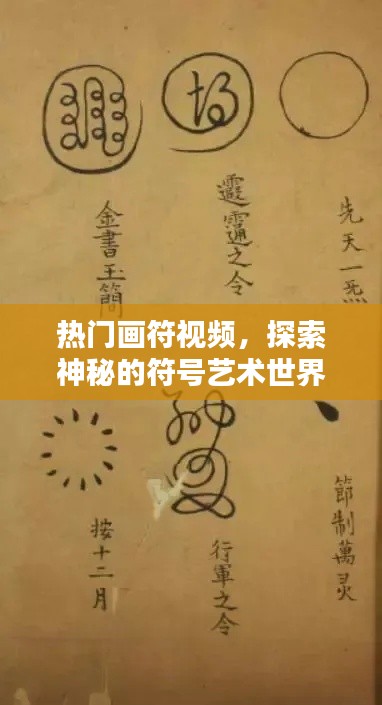 先天一炁
通之令
金書玉簡
热门画符视频，探索
神秘的符号艺术世界
節制萬灵
行軍之令
按十二月